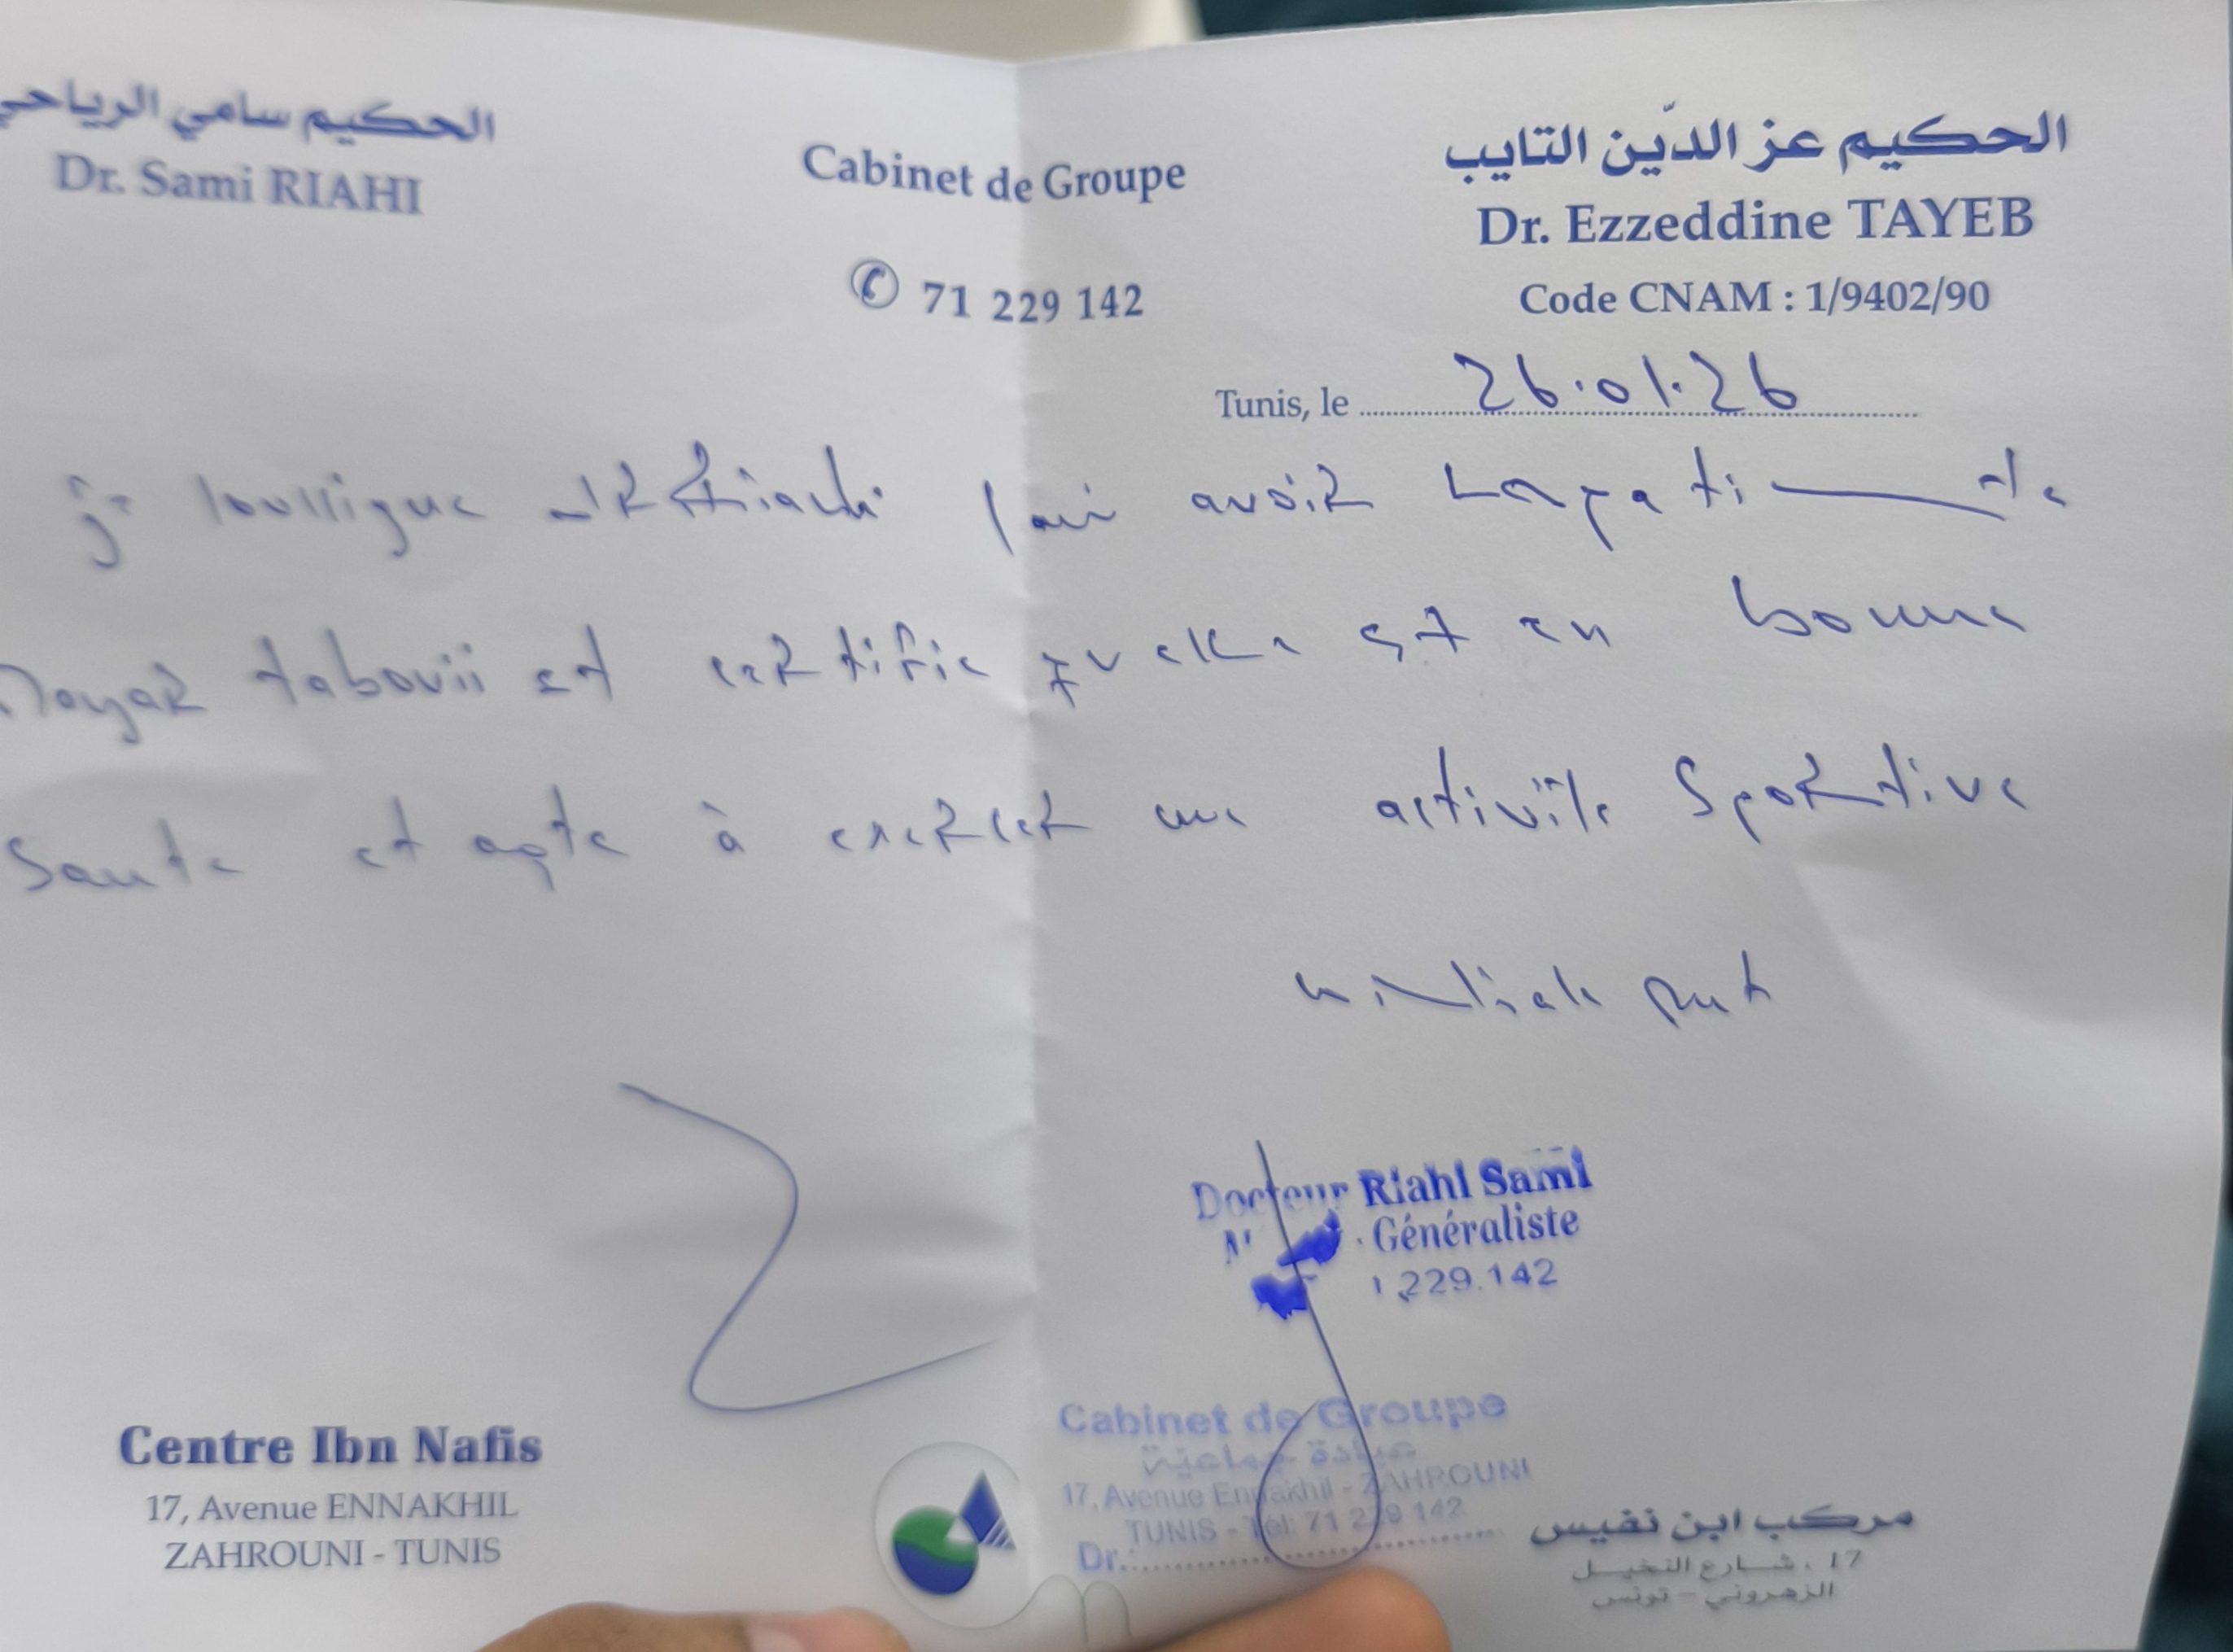 الحكيم سامي الرياحي
Dr. Sami RIAHI
Cabinet de Groupe
✆ 71 229 142
الحكيم عز الدّين التايب
Dr. Ezzeddine TAYEB
Code CNAM : 1/9402/90
Tunis, le 26.01.26
je avoir
et certifie qu elle est en bonne
Sante et apte à exercer une activite Sportive
Docteur Riahi Sami
Généraliste
229.142
Cabinet de Groupe
عيادة جماعية
17, Avenue Ennakhil - ZAHROUNI
TUNIS - Tél: 71 229 142
Dr.:
Centre Ibn Nafis
17, Avenue ENNAKHIL
ZAHROUNI - TUNIS
مركب ابن نفيس
17 ، شارع النخيل
الزهروني - تونس